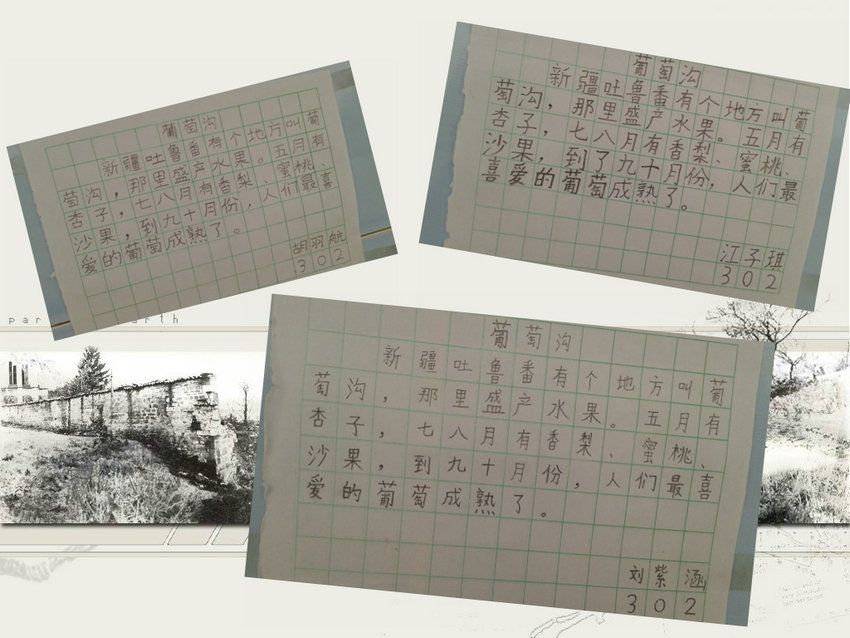 葡萄沟
新疆吐鲁番有个地方叫葡
萄沟，那里盛产水果。五月有
杏子，七八月有香梨、蜜桃、
沙果，到九十月份，人们最喜
爱的葡萄成熟了。
胡羽航
302
葡萄沟
新疆吐鲁番有个地方叫葡
萄沟，那里盛产水果。五月有
杏子，七八月有香梨、蜜桃、
沙果，到了九十月份，人们最
喜爱的葡萄成熟了。
江子琪
302
葡萄沟
新疆吐鲁番有个地方叫葡
萄沟，那里盛产水果。五月有
杏子，七八月有香梨、蜜桃、
沙果，到九十月份，人们最喜
爱的葡萄成熟了。
刘紫涵
302